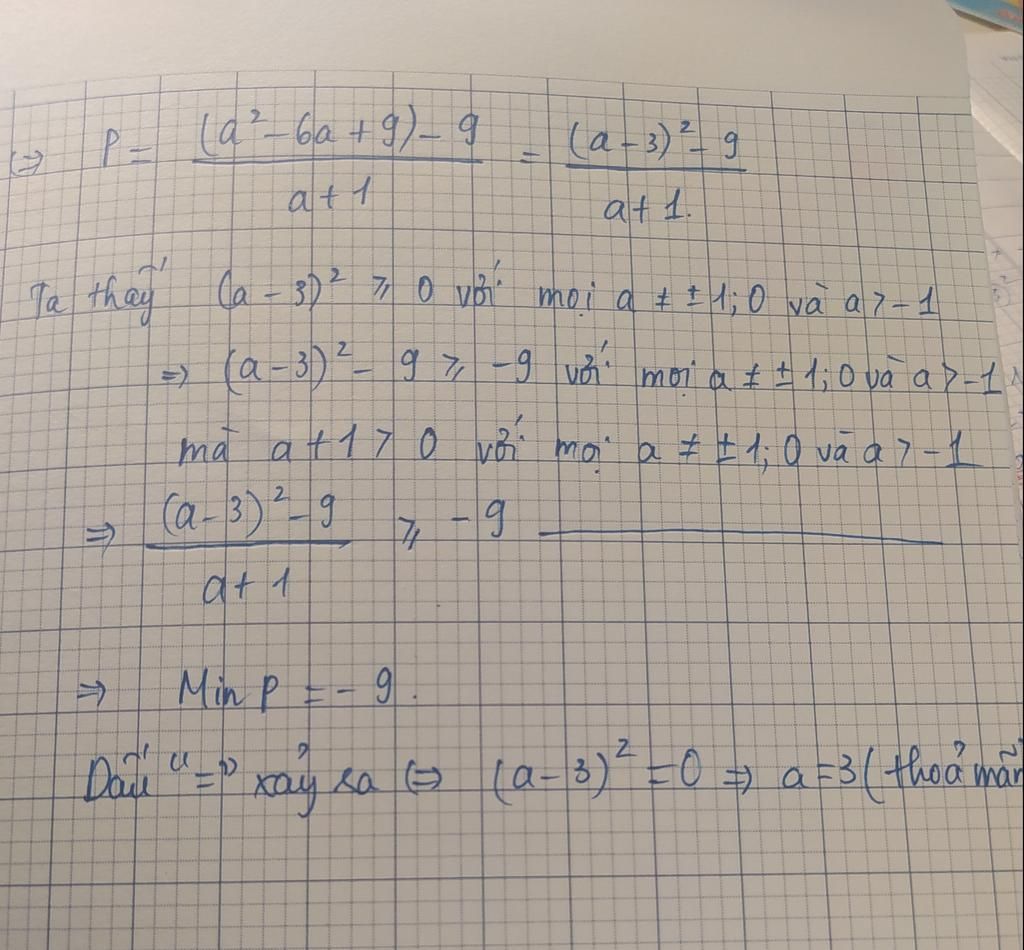 ⇔ P = \frac{(a² - 6a + 9) - 9}{a + 1} = \frac{(a - 3)² - 9}{a + 1}.
Ta thấy (a - 3)² ⩾ 0 với mọi a ≠ ± 1; 0 và a > -1
⇒ (a - 3)² - 9 ⩾ -9 với mọi a ≠ ± 1; 0 và a > -1
mà a + 1 > 0 với mọi a ≠ ± 1; 0 và a > -1
⇒ \frac{(a - 3)² - 9}{a + 1} ⩾ - 9 ————
⇒ Min P = - 9.
Dấu "=" xảy ra ⇔ (a - 3)² = 0 ⇒ a = 3 (thoả mãn